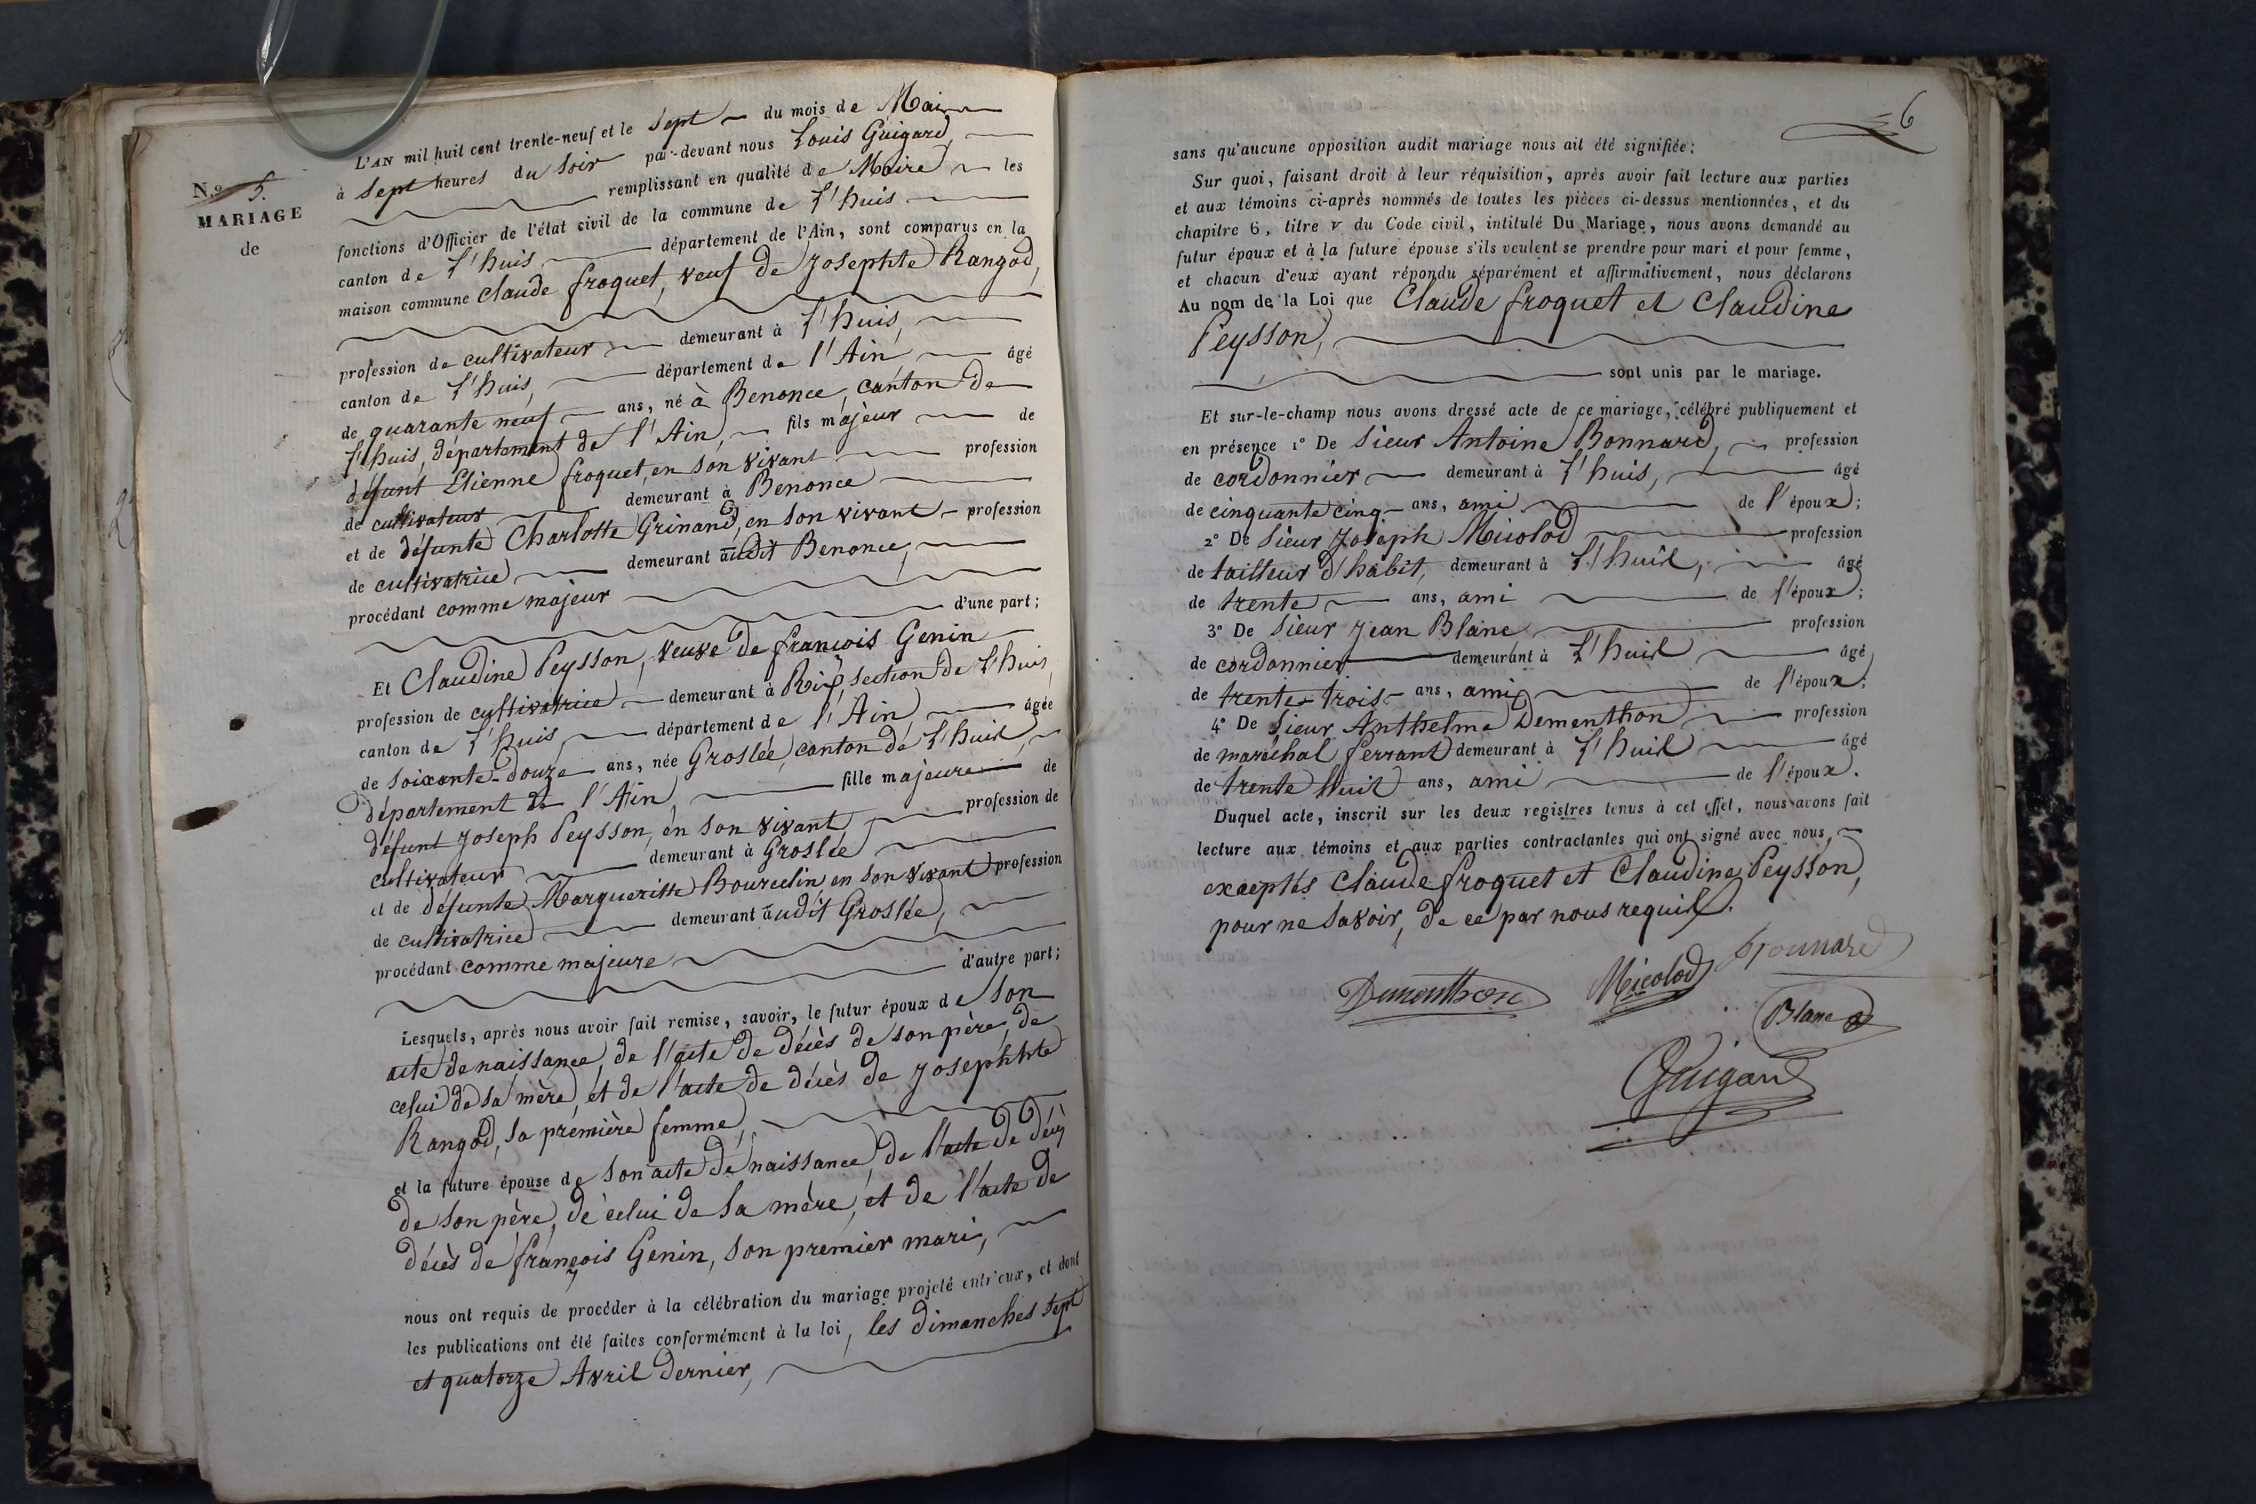 N.o 5.
MARIAGE
de
L'AN mil huit cent trente-neuf et le sept du mois de Mai
à sept heures du soir par-devant nous Louis Guigard,
remplissant en qualité de Maire les
fonctions d'Officier de l'état civil de la commune de l'huis
canton de l'huis département de l'Ain, sont comparus en la
maison commune Claude froquet, veuf de Josephte Rangod,
profession de cultivateur demeurant à l'huis,
canton de l'huis, département de l'Ain âgé
de quarante neuf ans, né à Benonce, canton de
l'huis, département de l'Ain, fils majeur de
défunt Etienne froquet, en son vivant profession
de cultivateur demeurant à Benonce
et de défunte Charlotte Grinand, en son vivant profession
de cultivatrice demeurant audit Benonce,
procédant comme majeur
d'une part;
Et Claudine Peysson, veuve de francois Genin
profession de cultivatrice demeurant à Rix, section de l'huis,
canton de l'huis département de l'Ain, âgée
de soixante-douze ans, née Groslée, canton de l'huis,
département de l'Ain, fille majeure de
défunt Joseph Peysson, en son vivant profession de
cultivateur demeurant à Groslée
et de défunte Margueritte Bourcelin, en son vivant profession
de cultivatrice demeurant audit Groslée,
procédant comme majeure
d'autre part;
Lesquels, après nous avoir fait remise, savoir, le futur époux de son
acte de naissance, de l'acte de décès de son père, de
celui de sa mère, et de l'acte de décès de Josephte
Rangod, sa première femme,
et la future épouse de son acte de naissance, de l'acte de décès
de son père, de celui de sa mère, et de l'acte de
décès de françois Genin, son premier mari,
nous ont requis de procéder à la célébration du mariage projeté entr'eux, et dont
les publications ont été faites conformément à la loi, les dimanches sept
et quatorze Avril dernier,
6
sans qu'aucune opposition audit mariage nous ait été signifiée;
Sur quoi, faisant droit à leur réquisition, après avoir fait lecture aux parties
et aux témoins ci-après nommés de toutes les pièces ci-dessus mentionnées, et du
chapitre 6, titre V du Code civil, intitulé Du Mariage, nous avons demandé au
futur époux et à la future épouse s'ils veulent se prendre pour mari et pour femme,
et chacun d'eux ayant répondu séparément et affirmativement, nous déclarons
Au nom de la Loi que Claude froquet et Claudine
Peysson,
sont unis par le mariage.
Et sur-le-champ nous avons dressé acte de ce mariage, célébré publiquement et
en présence 1° De sieur Antoine Bonnard, profession
de cordonnier demeurant à l'huis, âgé
de cinquante cinq ans, ami de l'époux;
2° De sieur Joseph Micolod profession
de tailleur d'habit, demeurant à l'huis, âgé
de trente ans, ami de l'époux;
3° De sieur Jean Blanc profession
de cordonnier demeurant à l'huis âgé
de trente-trois ans, ami de l'époux;
4° De sieur Anthelme Dementhon profession
de maréchal ferrant demeurant à l'huis âgé
de trente huit ans, ami de l'époux.
Duquel acte, inscrit sur les deux registres tenus à cet effet, nous avons fait
lecture aux témoins et aux parties contractantes qui ont signé avec nous,
exceptés Claude froquet et Claudine Peysson,
pour ne savoir, de ce par nous requis.
Bonnard
Dementhon Micolod
Blanc
Guigard